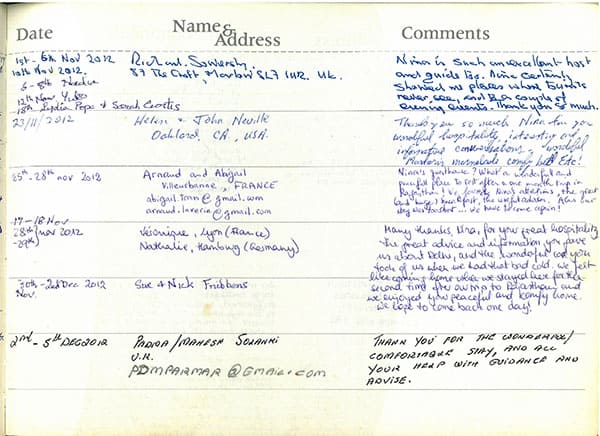 Date
Name & Address
Comments
1st - 6th Nov 2012
10th Nov 2012.
Richard
57 The Croft, Marlow SL7 1UR. UK.
Nina is such an excellent host
and guide too. Nina certainly
showed me places where tourists
never see, and to a couple of
evening events. Thank you so much.
12th Nov
18th India Pope & Sarah Curtis
23/11/2012
Helen & John Neville
Oakland, CA, USA.
Thank you so much Nina for you
wonderful hospitality, interesting and
informative conversations, wonderful
marmalade comfy bed Etc!
25th - 28th nov 2012
Arnaud and Abigail
Villeurbanne, FRANCE
Nina's guesthouse? What a wonderful and
peaceful place to rest after a one month trip in
Rajasthan! We loved Nina's attentions, the great
breakfast, the useful advices. Also our
we have to come again!
17 - 18 Nov
28th nov 2012
29th
Véronique, Lyon (France)
Nathalie, Hamburg (Germany)
Many thanks, Nina, for you great hospitality,
the great advice and information you gave
us about Delhi, and the wonderful care you
took of us when we had that bad cold. We felt
like coming home when we stayed here for the
second time after our trip to Rajasthan, and
we enjoyed you peaceful and comfy home.
We hope to come back one day!
30th - 2nd Dec 2012
Nov.
Sue & Nick Fribbens
2nd - 5th DEC 2012
PADMA / MAHESH SOLANKI
U.K.
PDMPARMAR@GMAIL.COM
THANK YOU FOR THE WONDERFUL/
COMFORTABLE STAY, AND ALL
YOUR HELP WITH GUIDANCE AND
ADVISE.